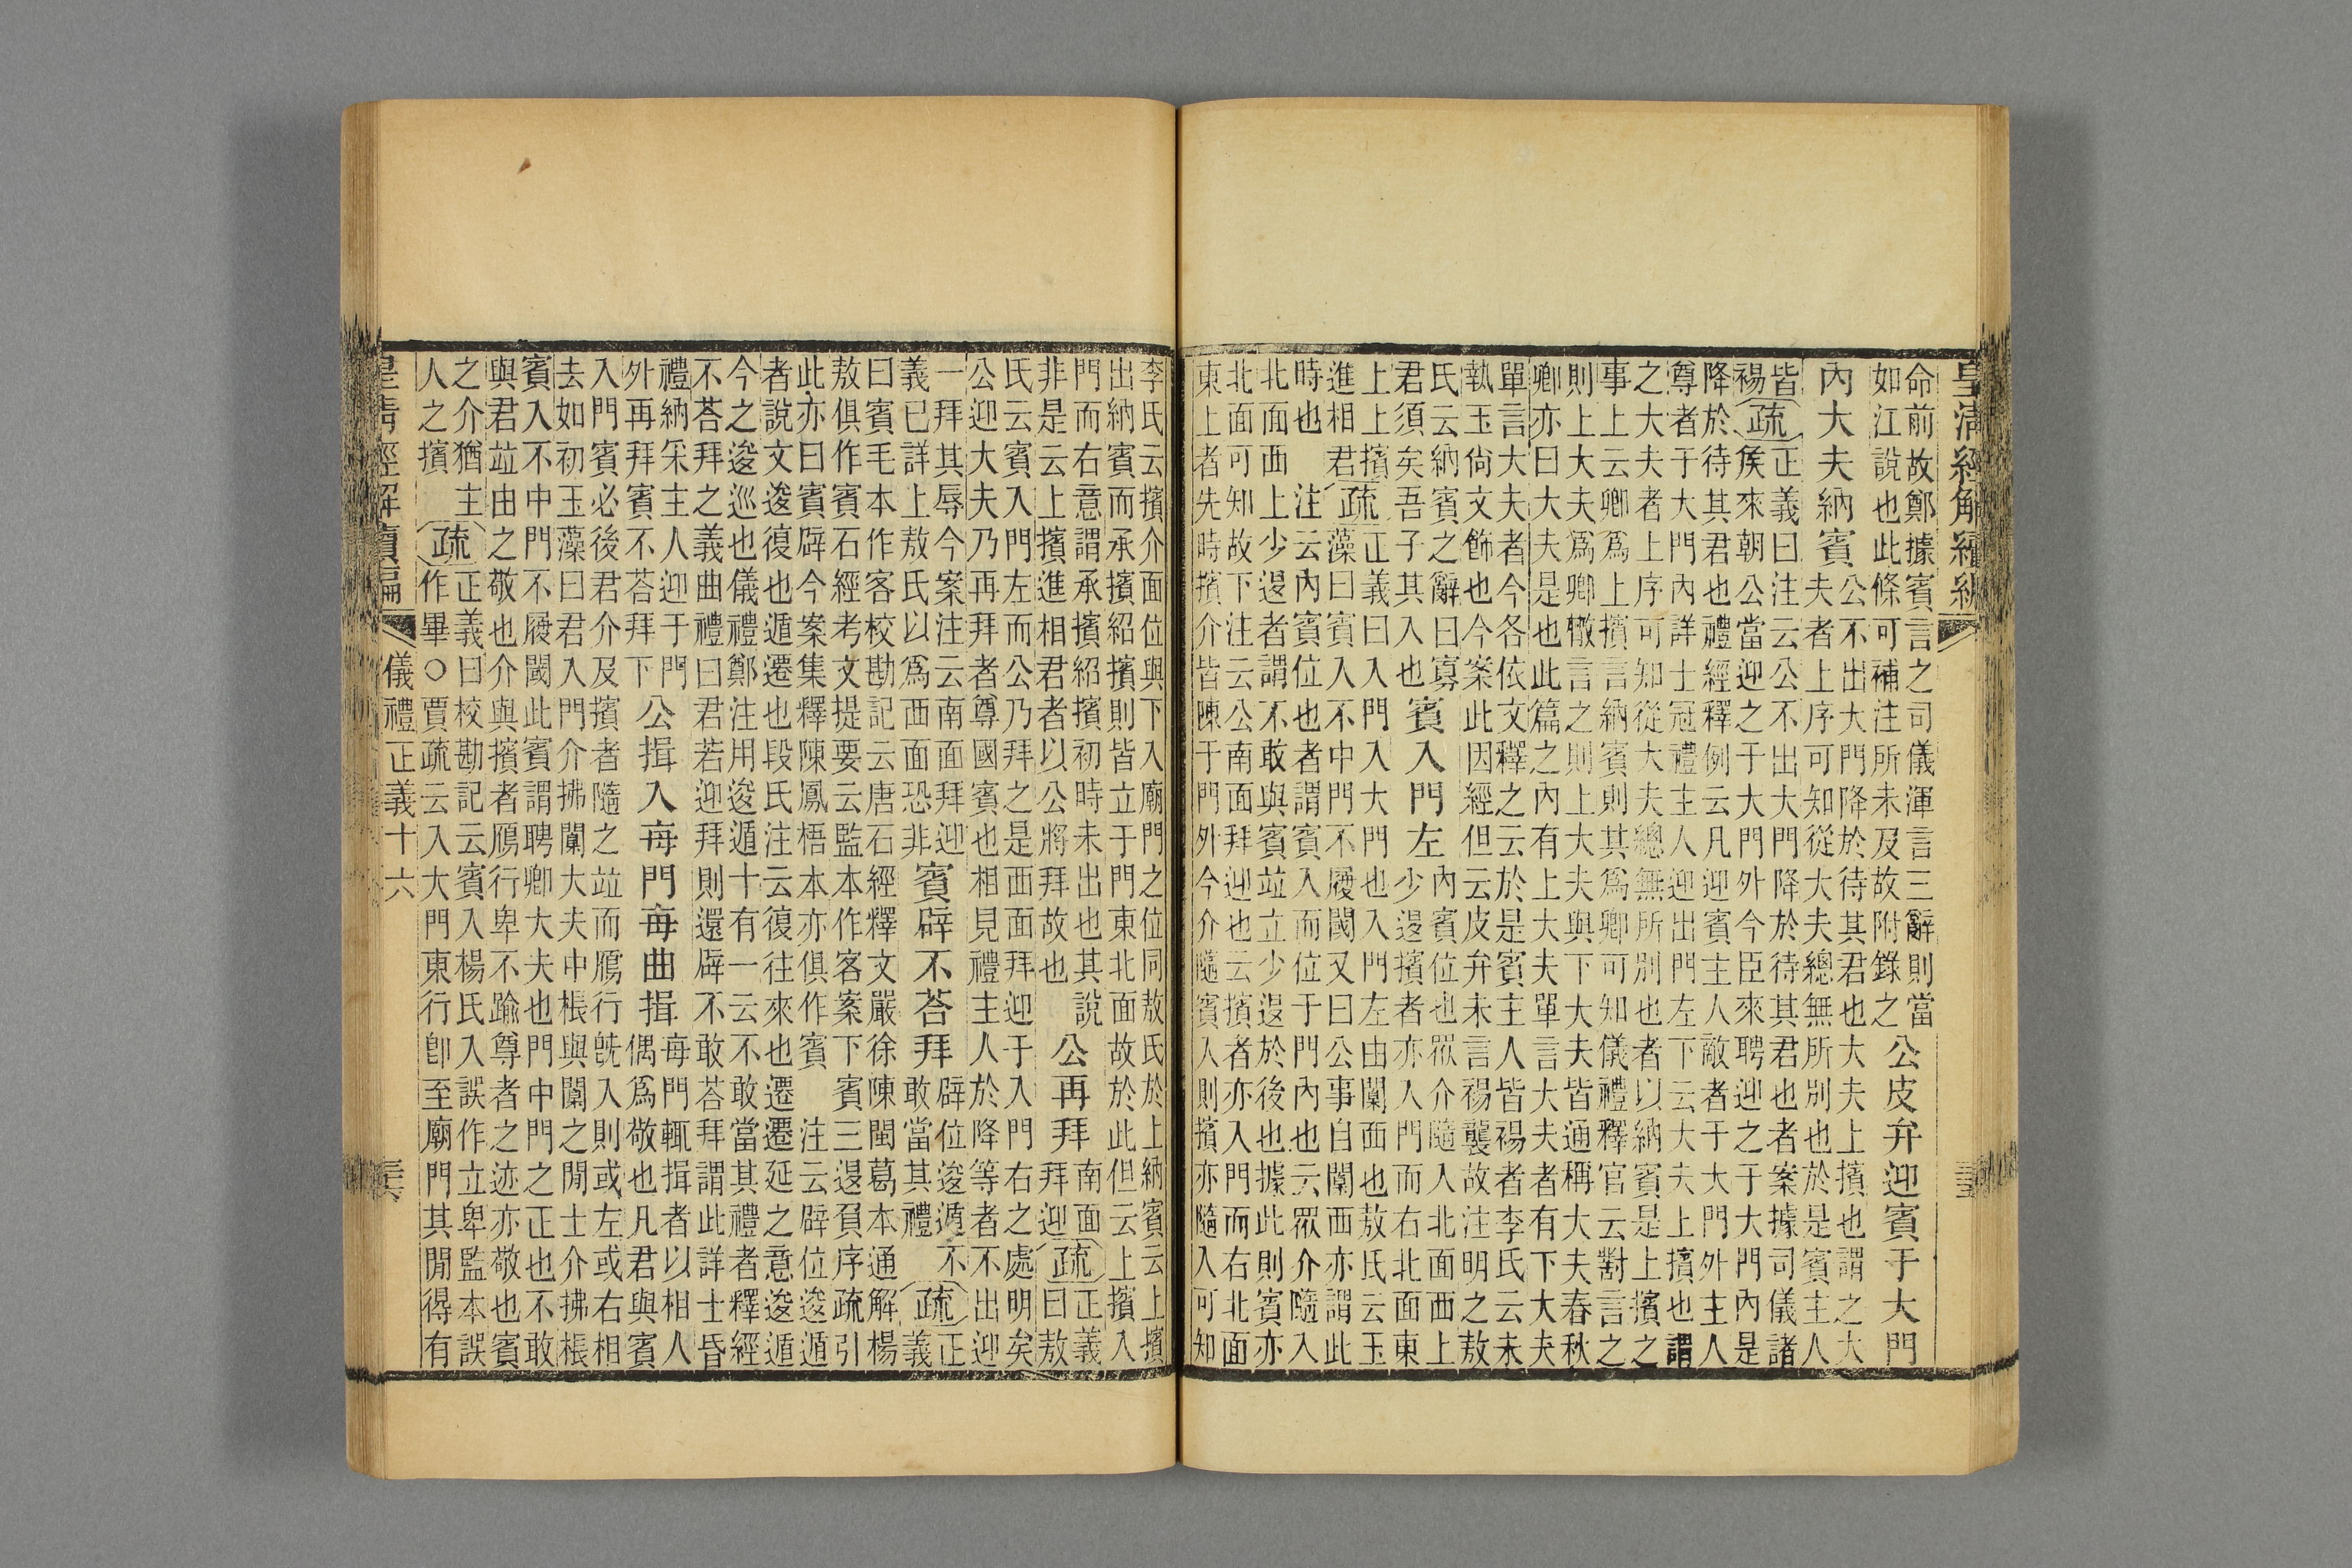 皇淸經解續編
命前故鄭據賓言之司儀渾言三辭則當
如江說也此條可補注所未及故附錄之
公皮弁迎賓于大門
內大夫納賓
公不出大門降於待其君也大夫上擯也謂之大
夫者上序可知從大夫總無所別也於是賓主人
皆
裼
疏
正義曰注云公不出大門降於待其君也者案據司儀諸
矦來朝公當迎之于大門外今臣來聘迎之于大門內是
降於待其君也禮經釋例云凡迎賓主人敵者于大門外主人
尊者于大門內詳士冠禮主人迎出門左下云大夫上擯也謂
之大夫者上序可知從大夫總無所別也者以納賓是上擯之
事上云卿爲上擯言納賓則其爲卿可知儀禮釋官云對言之
則上大夫爲卿檄言之則上大夫與下大夫皆通稱大夫春秋
卿亦曰大夫是也此篇之內有上大夫單言大夫者有下大夫
單言大夫者今各依文釋之云於是賓主人皆裼者李氏云未
執玉尙文飾也今案此因經但云皮弁未言裼襲故注明之敖
氏云納賓之辭曰寡
君須矣吾子其入也
賓入門左
內賓位也眾介隨入北面西上
少退擯者亦入門而右北面東
上上擯
進相君
疏
正義曰入門入大門也入門左由闑西也敖氏云玉
藻曰賓入不中門不履閾又曰公事自闑西亦謂此
時也　注云內賓位也者謂賓入而位于門內也云眾介隨入
北面西上少退者謂不敢與賓竝立少退於後也據此則賓亦
北面可知故下注云公南面拜迎也云擯者亦入門而右北面
東上者先時擯介皆陳于門外今介隨賓入則擯亦隨入可知
李氏云擯介面位與下入廟門之位同敖氏於上納賓云上擯
出納賓而承擯紹擯則皆立于門東北面故於此但云上擯入
門而右意謂承擯紹擯初時未出也其說
非是云上擯進相君者以公將拜故也
公再拜
南面
拜迎
疏
正義
曰敖
氏云賓入門左而公乃拜之是西面拜迎于入門右之處明矣
公迎大夫乃再拜者尊國賓也相見禮主人於降等者不出迎
一拜其辱今案注云南面拜迎
義已詳上敖氏以爲西面恐非
賓辟不荅拜
辟位逡遁不
敢當其禮
疏
正
義
曰賓毛本作客校勘記云唐石經釋文嚴徐陳閩葛本通解楊
敖俱作賓石經考文提要云監本作客案下賓三退負序疏引
此亦曰賓辟今案集釋陳鳳梧本亦俱作賓　注云辟位逡遁
者說文逡復也遁遷也段氏注云復往來也遷遷延之意逡遁
今之逡巡也儀禮鄭注用逡遁十有一云不敢當其禮者釋經
不荅拜之義曲禮曰君若迎拜則還辟不敢荅拜謂此詳士昏
禮納采主人迎于門
外再拜賓不荅拜下
公揖入每門每曲揖
每門輒揖者以相人
偶爲敬也凡君與賓
入門賓必後君介及擯者隨之竝而鴈行旣入則或左或右相
去如初玉藻曰君入門介拂闑大夫中棖與闑之閒士介拂棖
賓入不中門不履閾此賓謂聘卿大夫也門中門之正也不敢
與君竝由之敬也介與擯者鴈行卑不踰尊者之迹亦敬也賓
之介猶主
人之擯
疏
正義曰校勘記云賓入楊氏入誤作立卑監本誤
作畢○賈疏云入大門東行卽至廟門其閒得有
皇淸經解續編
儀禮正義十六